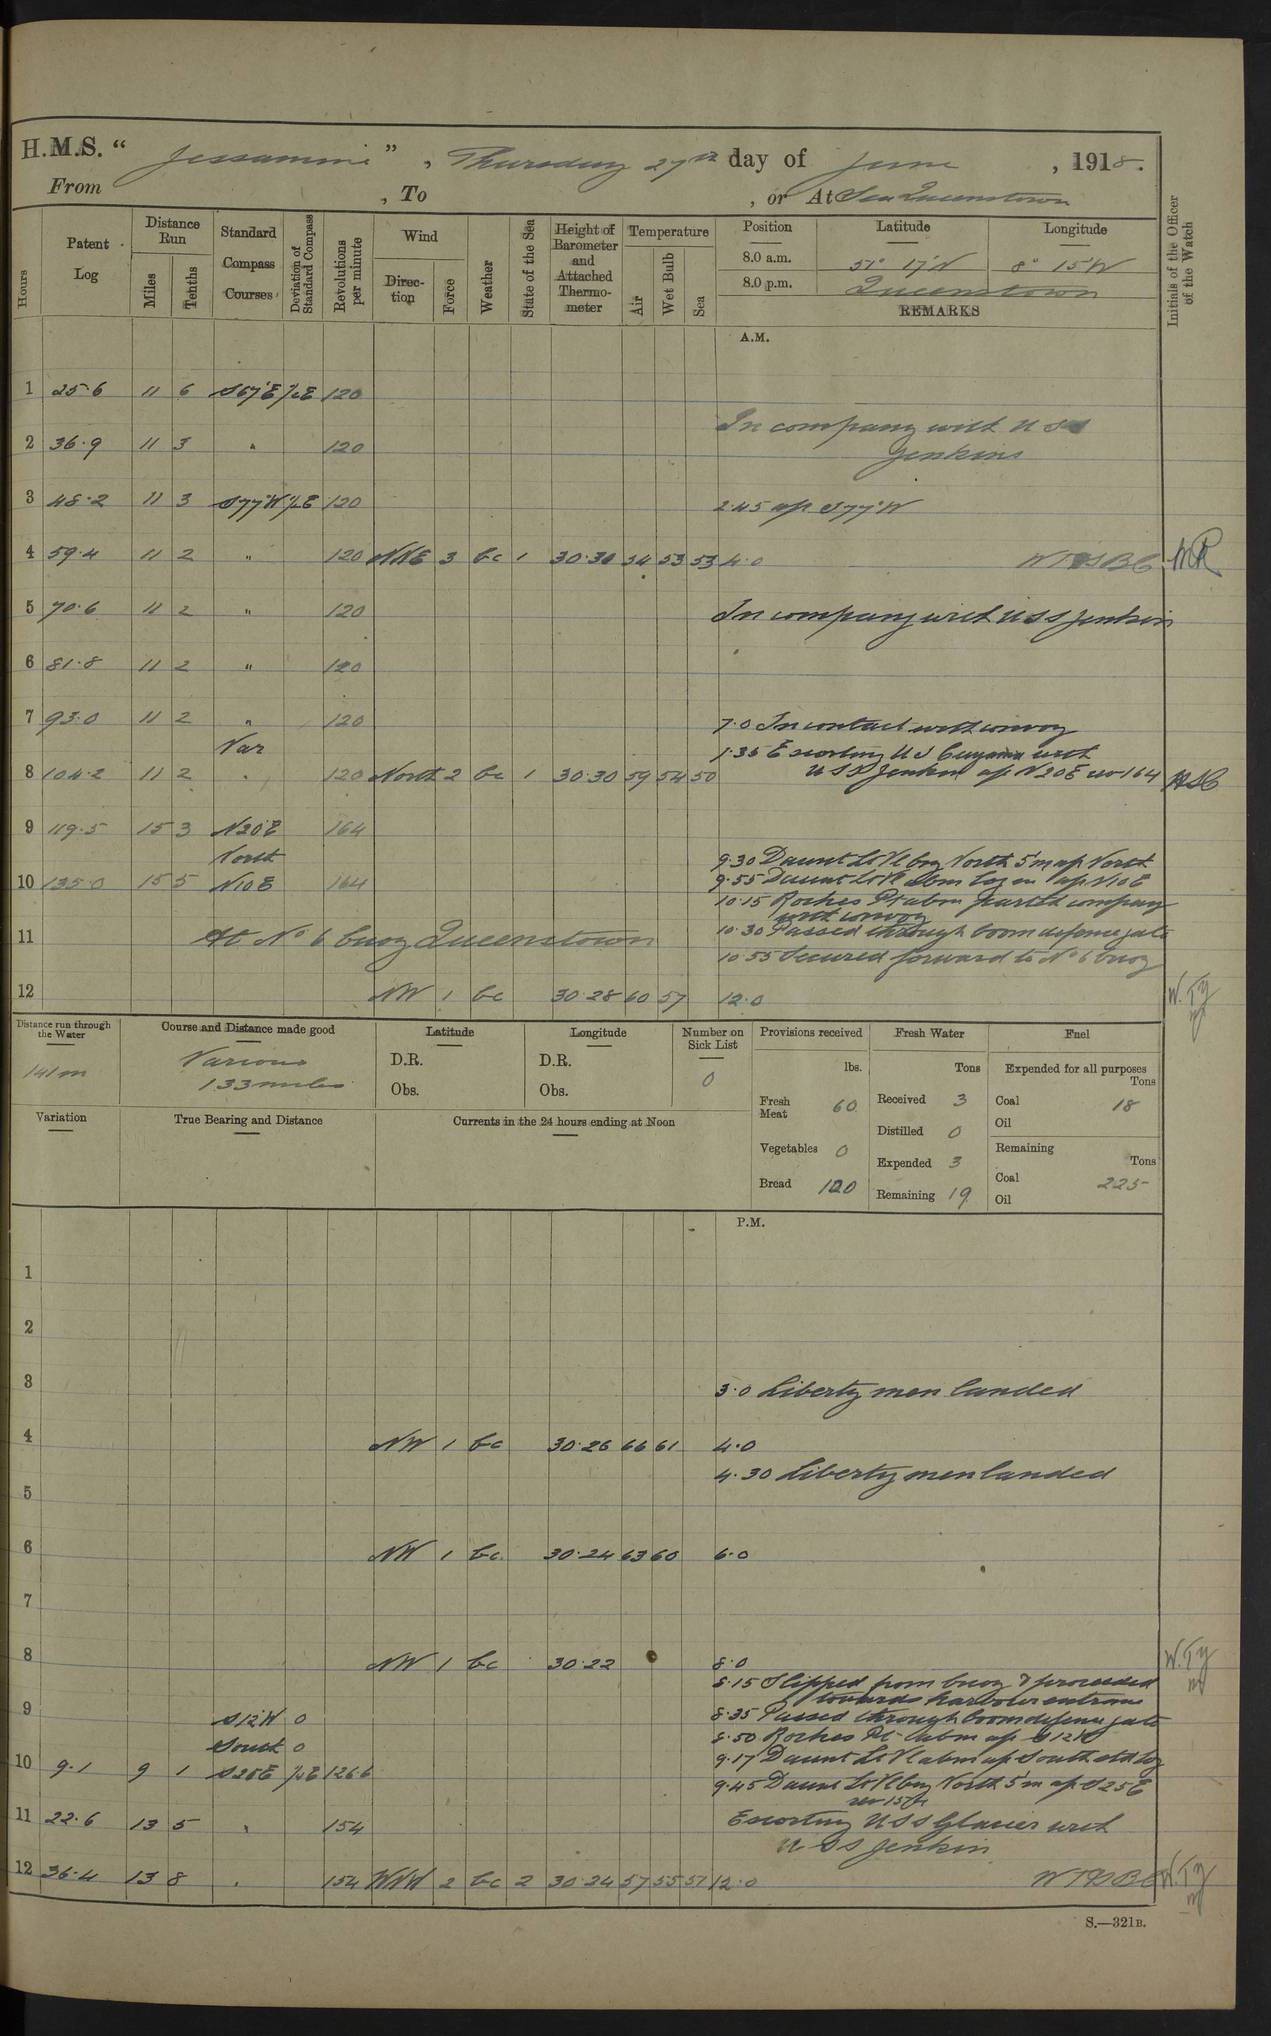 H.M.S. “ Jessamine ” , Thursday 27th day of June , 1918.
From , To , or At Sea Queenstown
Hours
Patent Log
Distance Run
Miles
Tenths
Standard Compass Courses
Deviation of Standard Compass
Revolutions per minute
Wind
Direction
Force
Weather
State of the Sea
Height of Barometer and Attached Thermometer
Temperature
Air
Wet Bulb
Sea
Position Latitude Longitude
8.0 a.m. 51° 17'N 8° 15'W
8.0 p.m. Queenstown
REMARKS
Initials of the Officer of the Watch
A.M.
1 25.6 11 6 S67°E 120
In company with USS
2 36.9 11 3 " 120 Jenkins
3 48.2 11 3 S77°W 120 2.45 a/c S77°W
4 59.4 11 2 " 120 NNE 3 bc 1 30.30 54 53 53 4.0
5 70.6 11 2 " 120 In company with USS Jenkin
6 81.8 11 2 " 120
7 93.0 11 2 " 120 7.0 In contact with convoy
Var 7.35 Escorting US Cuyama with
8 104.2 11 2 " 120 North 2 bc 1 30.30 59 54 50 USS Jenkins a/c N20E rev 164
9 119.5 15 3 N20E 164
North 9.30 Daunt Lt Vl brg North 5'm a/c North
10 135.0 15 5 N10E 164 9.55 Daunt Lt Vl abm log in a/c N10E
10.15 Roches Pt abm parted company
with convoy
11 At No 6 buoy Queenstown 10.30 Passed through boom defence gate
10.55 Secured forward to No 6 buoy
12 NW 1 bc 30.28 60 57 12.0
Distance run through the Water
141m
Course and Distance made good
Various
133 miles
Latitude
D.R.
Obs.
Longitude
D.R.
Obs.
Number on Sick List
0
Provisions received
lbs.
Fresh Meat 60
Vegetables 0
Bread 120
Fresh Water
Tons
Received 3
Distilled 0
Expended 3
Remaining 19
Fuel
Expended for all purposes
Tons
Coal 18
Oil
Remaining
Tons
Coal 225
Oil
Variation
True Bearing and Distance
Currents in the 24 hours ending at Noon
P.M.
1
2
3 3.0 Liberty men landed
4 NW 1 bc 30.26 66 61 4.0
4.30 Liberty men landed
5
6 NW 1 bc 30.24 63 60 6.0
7
8 NW 1 bc 30.22 8.0
8.15 Slipped from buoy & proceeded
towards harbour entrance
9 S12W 0 8.35 Passed through boom defence gate
South 0 8.50 Roches Pt abm a/c S12W
10 9.1 9 1 S25E 126.6 9.17 Daunt Lt Vl abm a/c South std log
9.45 Daunt Lt Vl brg North 5'm a/c S25E
rev 154
11 22.6 13 5 " 154 Escorting USS Glacier with
USS Jenkin
12 36.4 13 8 " 154 WNW 2 bc 2 30.24 57 55 51 12.0
S.—321B.